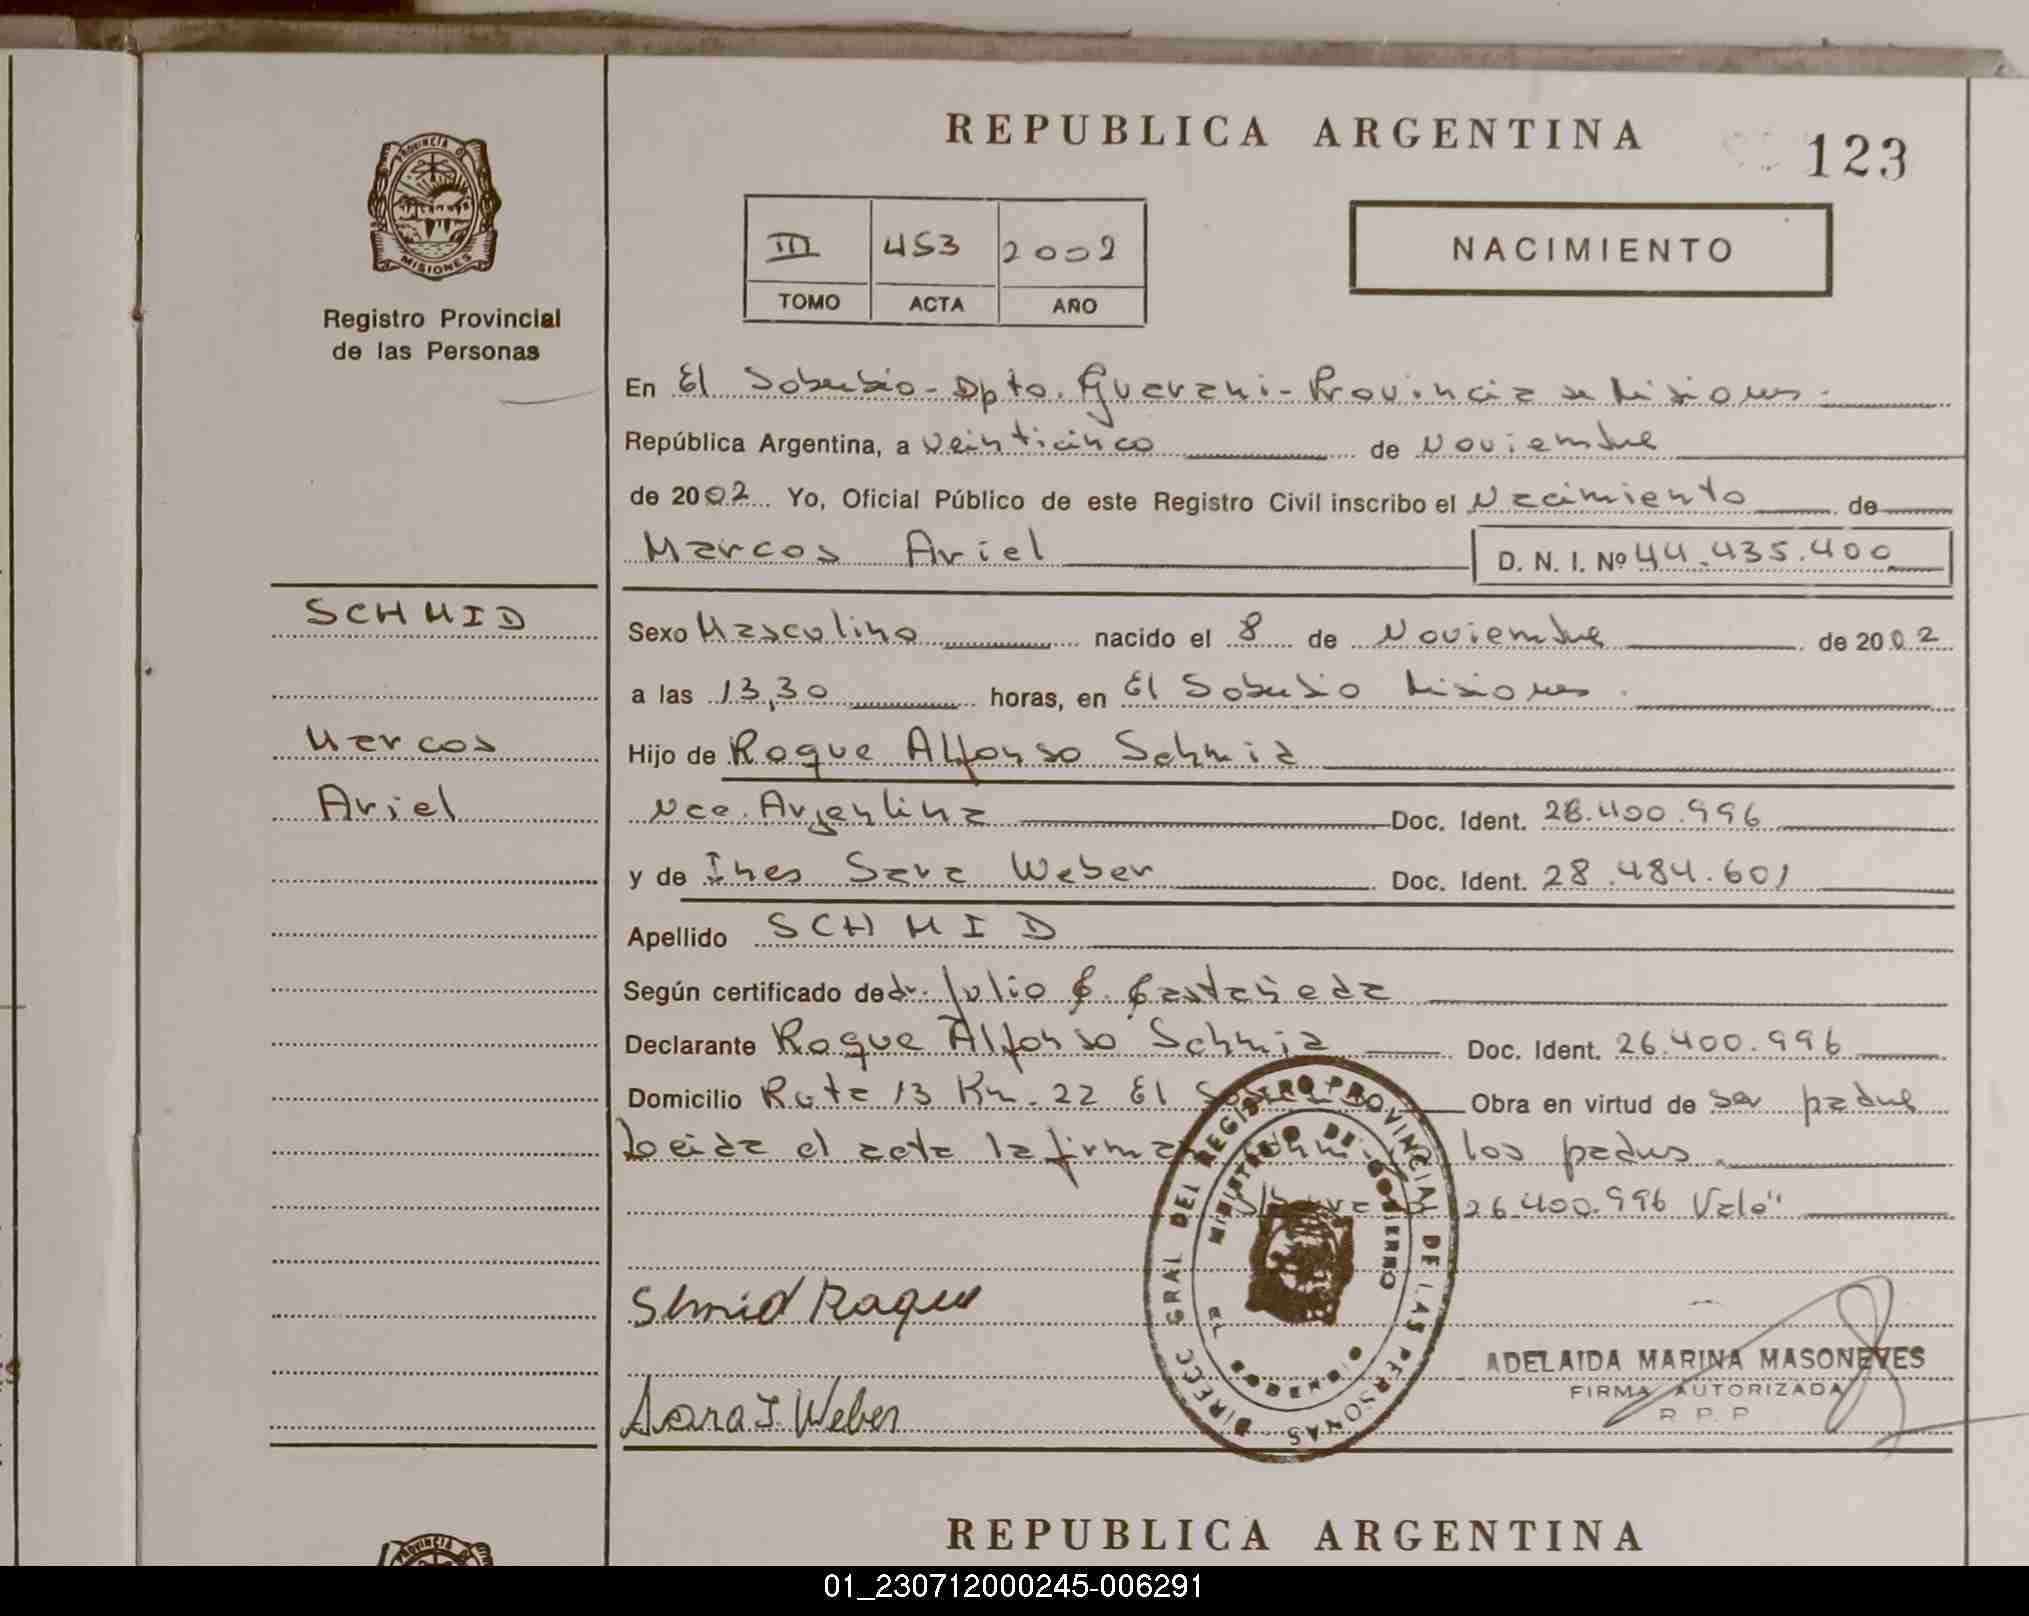 REPUBLICA ARGENTINA
123
PROVINCIA DE
MISIONES
Registro Provincial
de las Personas
III 453 2002
TOMO ACTA AÑO
NACIMIENTO
En El Soberbio - Dpto. Guarani - Provincia de Misiones.
República Argentina, a veinticinco de Noviembre
de 2002 Yo, Oficial Público de este Registro Civil inscribo el Nacimiento de
Marcos Ariel D. N. I. Nº 44.435.400
SCHMID
Marcos
Ariel
Sexo Masculino nacido el 8 de Noviembre de 2002
a las 13,30 horas, en El Soberbio Misiones.
Hijo de Roque Alfonso Schmid
Nac. Argentina Doc. Ident. 28.400.996
y de Ines Sara Weber Doc. Ident. 28.484.601
Apellido SCHMID
Según certificado de dr. Julio C. Castañeda
Declarante Roque Alfonso Schmid Doc. Ident. 26.400.996
Domicilio Ruta 13 Km. 22 El Obra en virtud de ser padre
Leida el acta la firma los padres.
26.400.996 Vale"
Shmid Roque
Sara I. Weber
DIRECC GRAL DEL REGISTRO PROVINCIAL DE LAS PERSONAS
MINISTERIO DE GOBIERNO
ADELAIDA MARINA MASONEVES
FIRMA AUTORIZADA
R. P. P.
PROVINCIA DE
REPUBLICA ARGENTINA
01_230712000245-006291